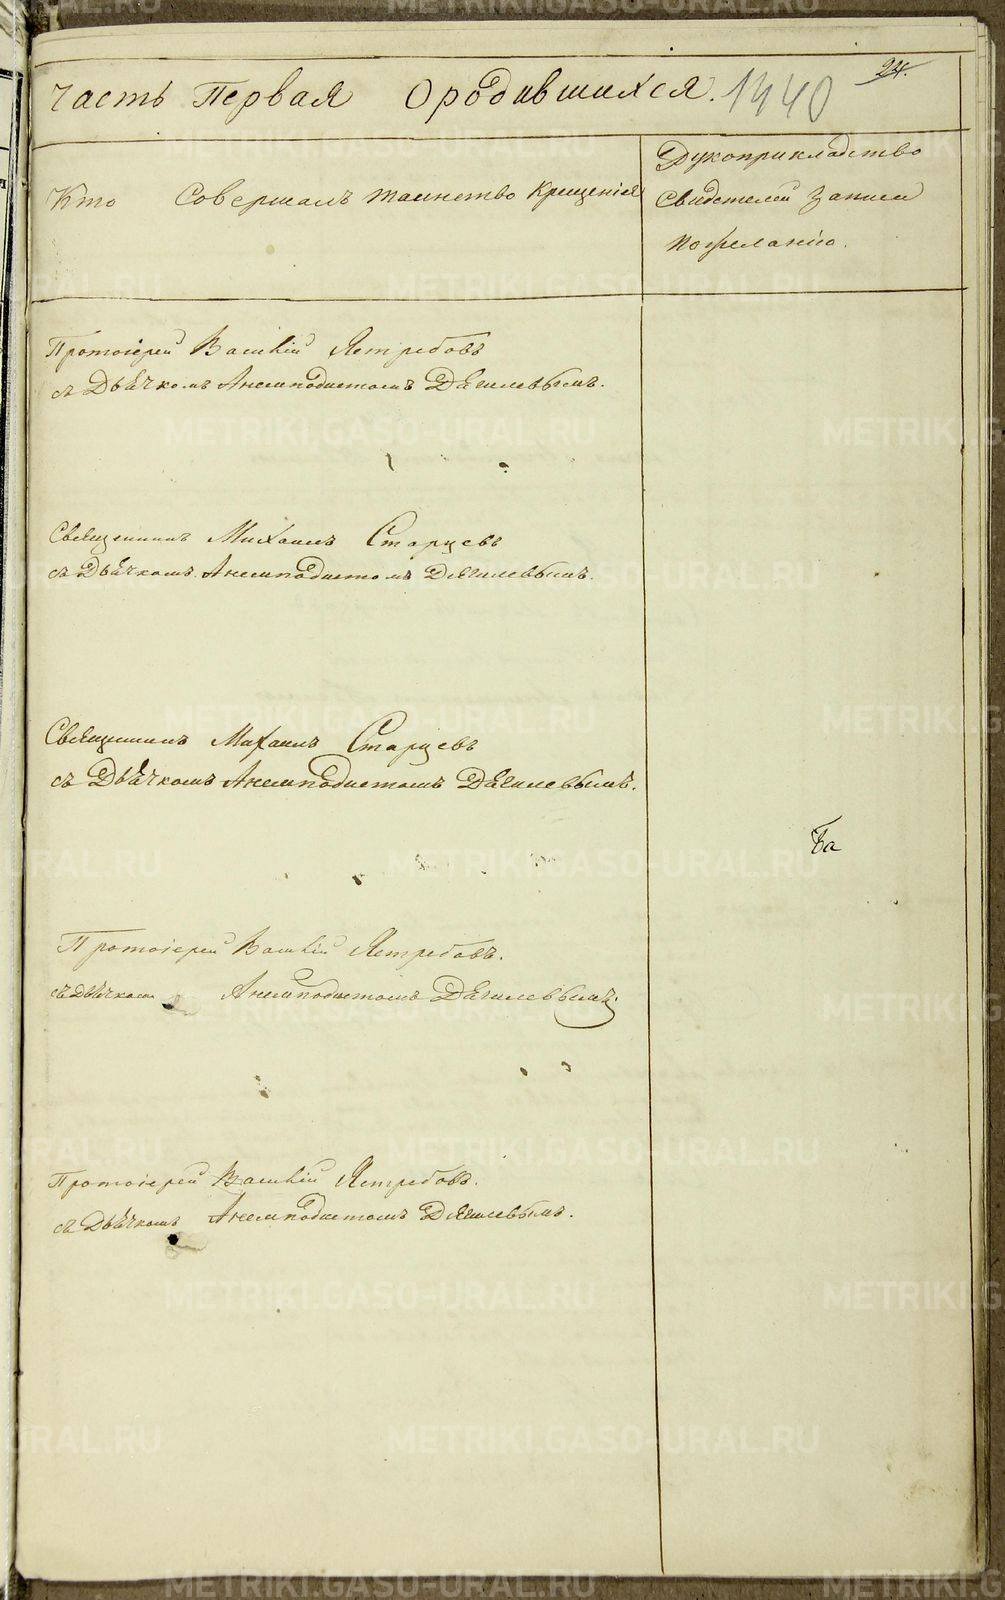 24.
Часть Первая О родившихся. 1440
Кто Совершалъ таинство Крещенія
Рукоприкладство
Свидетелей Записи
по желанію.
Протоіерей Василій Ястребовъ
съ Дьячкомъ Анемподистомъ Дягилевымъ.
Священникъ Михаилъ Старцевъ
съ Дьячкомъ Анемподистомъ Дягилевымъ.
Священникъ Михаилъ Старцевъ
съ Дьячкомъ Анемподистомъ Дягилевымъ.
Протоіерей Василій Ястребовъ.
съ Дьячкомъ Анемподистомъ Дягилевымъ.
Протоіерей Василій Ястребовъ.
съ Дьячкомъ Анемподистомъ Дягилевымъ.
METRIKI.GASO-URAL.RU